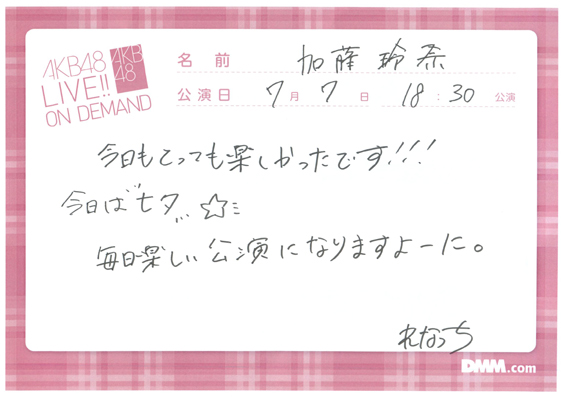 AKB48
LIVE!!
ON DEMAND
AKB
48
名前 加藤 玲奈
公演日 7月7日 18:30 公演
今日もとっても楽しかったです!!!
今日は〝七夕〟☆
毎日楽しい公演になりますよーに。
れなっち
DMM.com